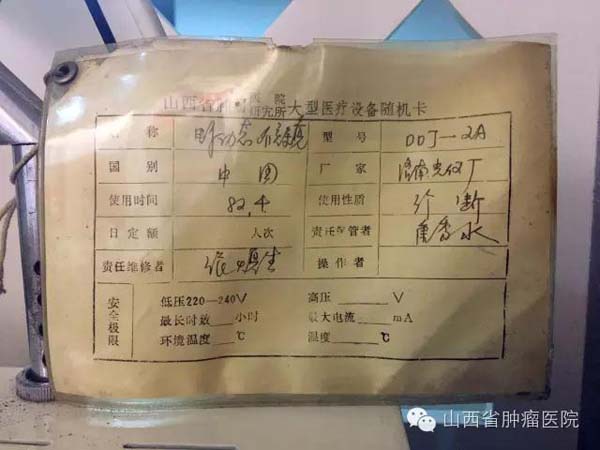 山西省肿瘤医院研究所大型医疗设备随机卡
名 称 型 号 DDJ—2A
国 别 中 国 厂 家 济南光仪厂
使用时间 82.4 使用性质 诊 断
日定额 人次 责任保管者 香水
责任维修者 操作者
安全极限
低压220—240V 高压____V
最长时效___小时 最大电流____mA
环境温度___℃ 温度____℃
山西省肿瘤医院